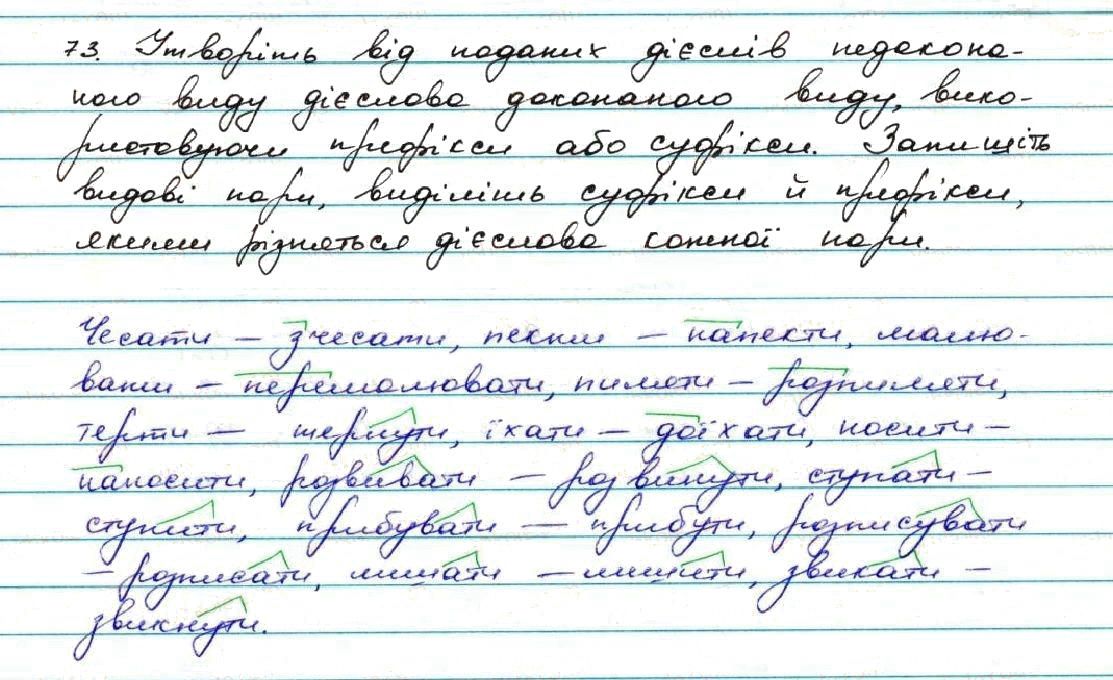 73. Утворіть від поданих дієслів недокона-
ного виду дієслова доконаного виду, вико-
ристовуючи префікси або суфікси. Запишість
видові пари, виділіть суфікси й префікси,
якими різняться дієслова кожної пари.
Чесати – зчесати, пекти – напекти, малю-
вати – перемалювати, пиляти – розпиляти,
терти – тернути, їхати – доїхати, носити –
наносити, розвивати – розвинути, ступати –
ступити, прибувати – прибути, розписувати
– розписати, лишати – лишити, звикати –
звикнути.